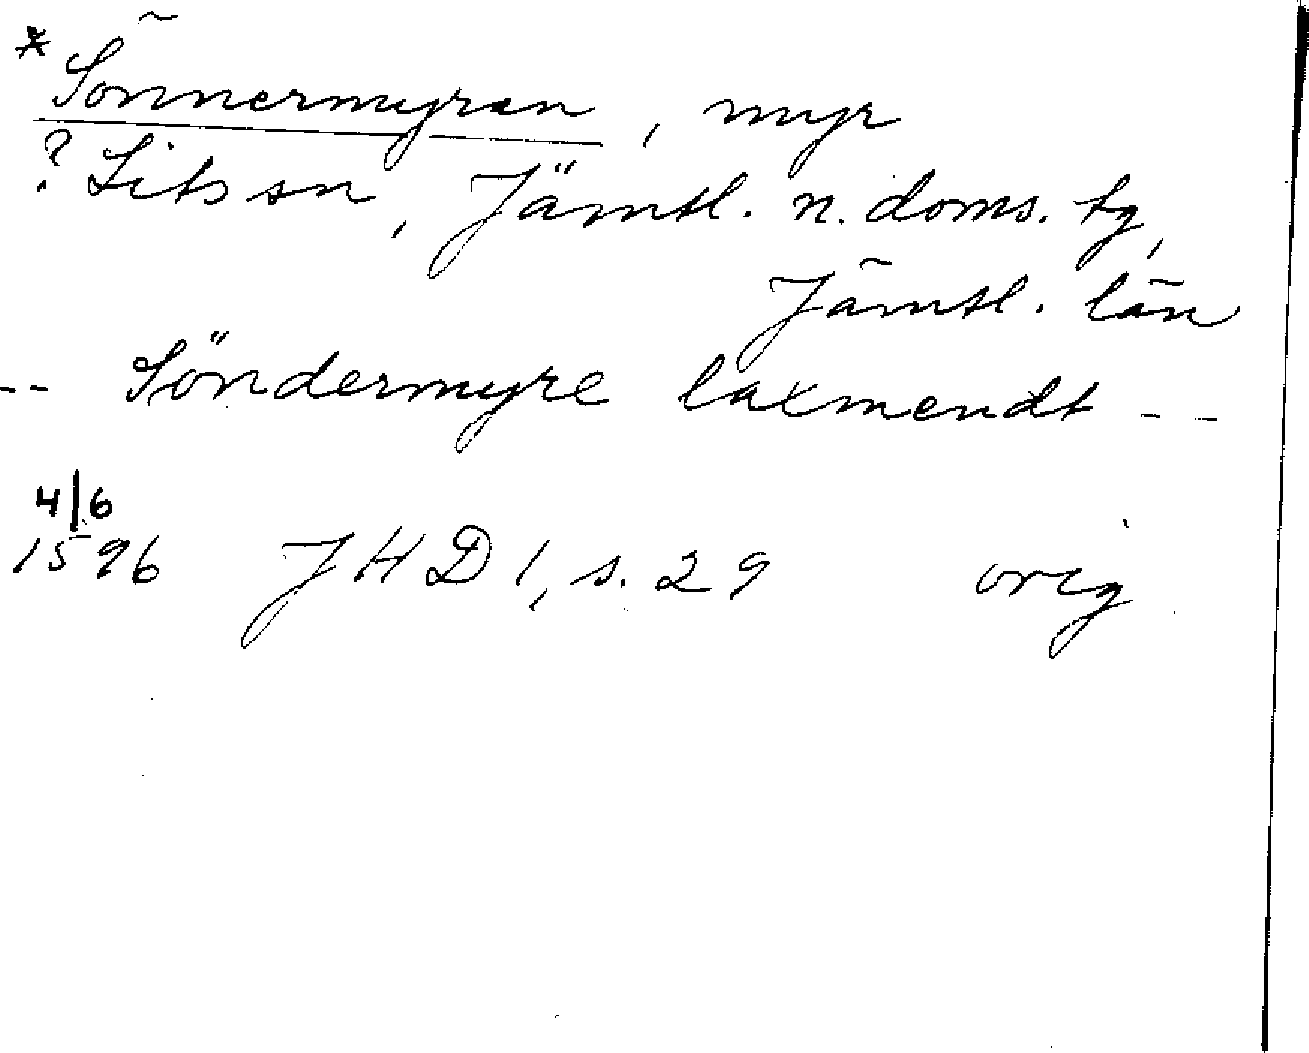 *Sönnermyran, myr
? Lits sn, Jämtl. n. doms. tg,
Jämtl. län
-- Söndermyre laxmendt --
4/6
1596 JHD 1, s. 29 orig